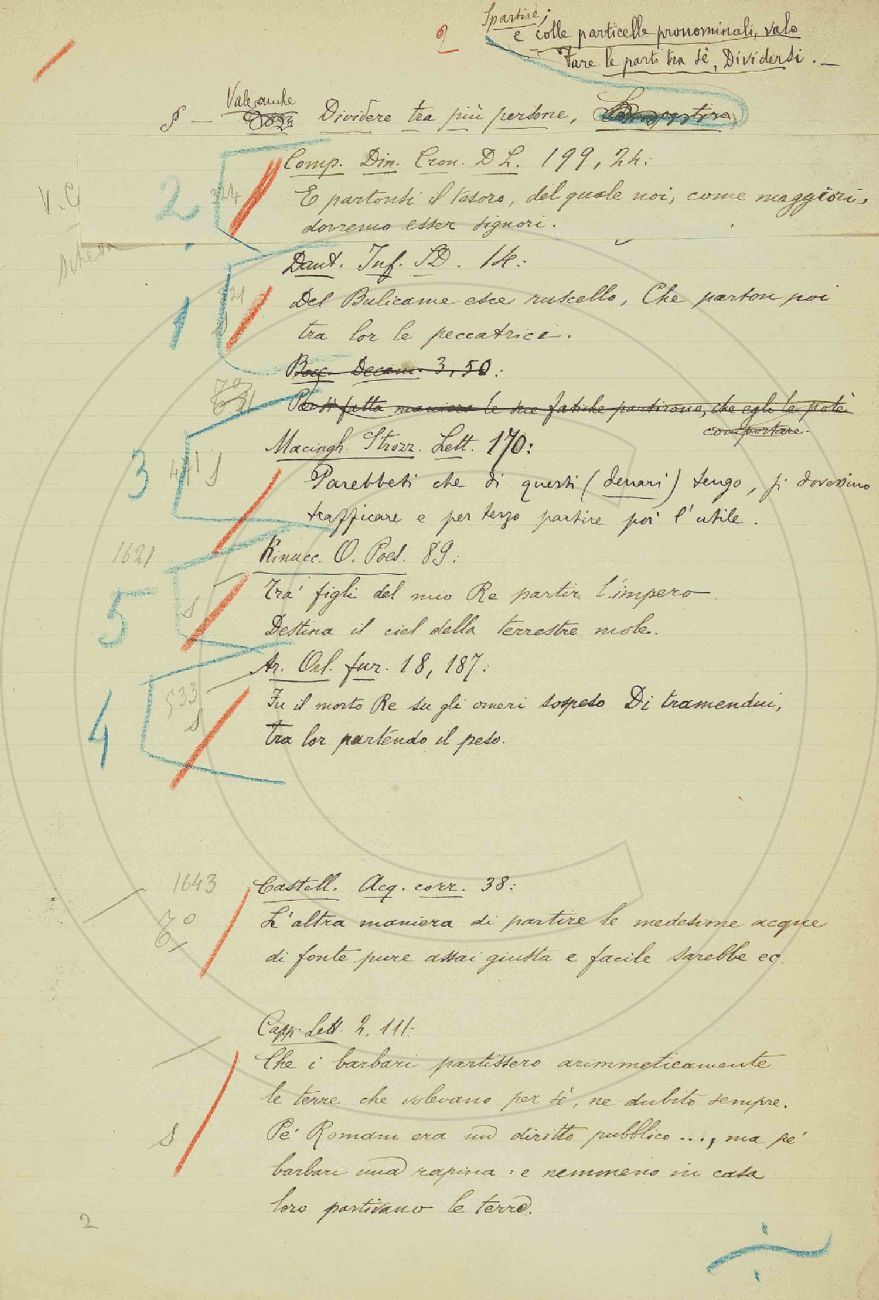 2 Spartire;
e colle particelle pronominali, vale
Fare le parti tra sè, Dividersi. —
Vale anche
§ — Dividere tra più persone,
Comp. Din. Cron. D L. 199, 24:
V. C 2 324
E partonsi il tesoro, del quale noi, come maggiori,
dovremo esser signori.
scheda
Dant. Inf. SD. 14:
1 S
Del Bulicame esce ruscello, Che parton poi
tra lor le peccatrici.
Bocc. Decam. 3, 50:
Per sì fatta maniera le sue fatiche partirono, che egli le potè
comportare.
Macingh. Strozz. Lett. 170:
3 S
Parebbeti che di questi (denari) tengo, si dovessino
trafficare e per terzo partire poi l'utile.
1621 Rinucc. O. Poes. 89:
5 S
Tra' figli del mio Re partir l'impero
Destina il ciel della terrestre mole.
Ar. Orl. fur. 18, 187:
4 533 S
Fu il morto Re su gli omeri sospeso Di tramendui,
tra lor partendo il peso.
1643 Castell. Acq. corr. 38:
L'altra maniera di partire le medesime acque
di fonte pure assai giusta e facile sarebbe ec.
Capp. Lett. 2. 111:
Che i barbari partissero arimmeticamente
le terre che volevano per sè, ne dubitò sempre.
S Pe' Romani era un diritto pubblico ..., ma pe'
barbari una rapina: e nemmeno in casa
loro partivano le terre.
2